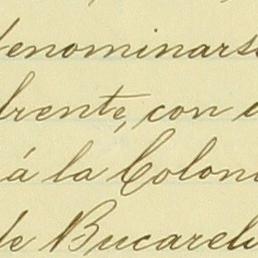 denominarse
frente, con
á la Colon
de Bucareli